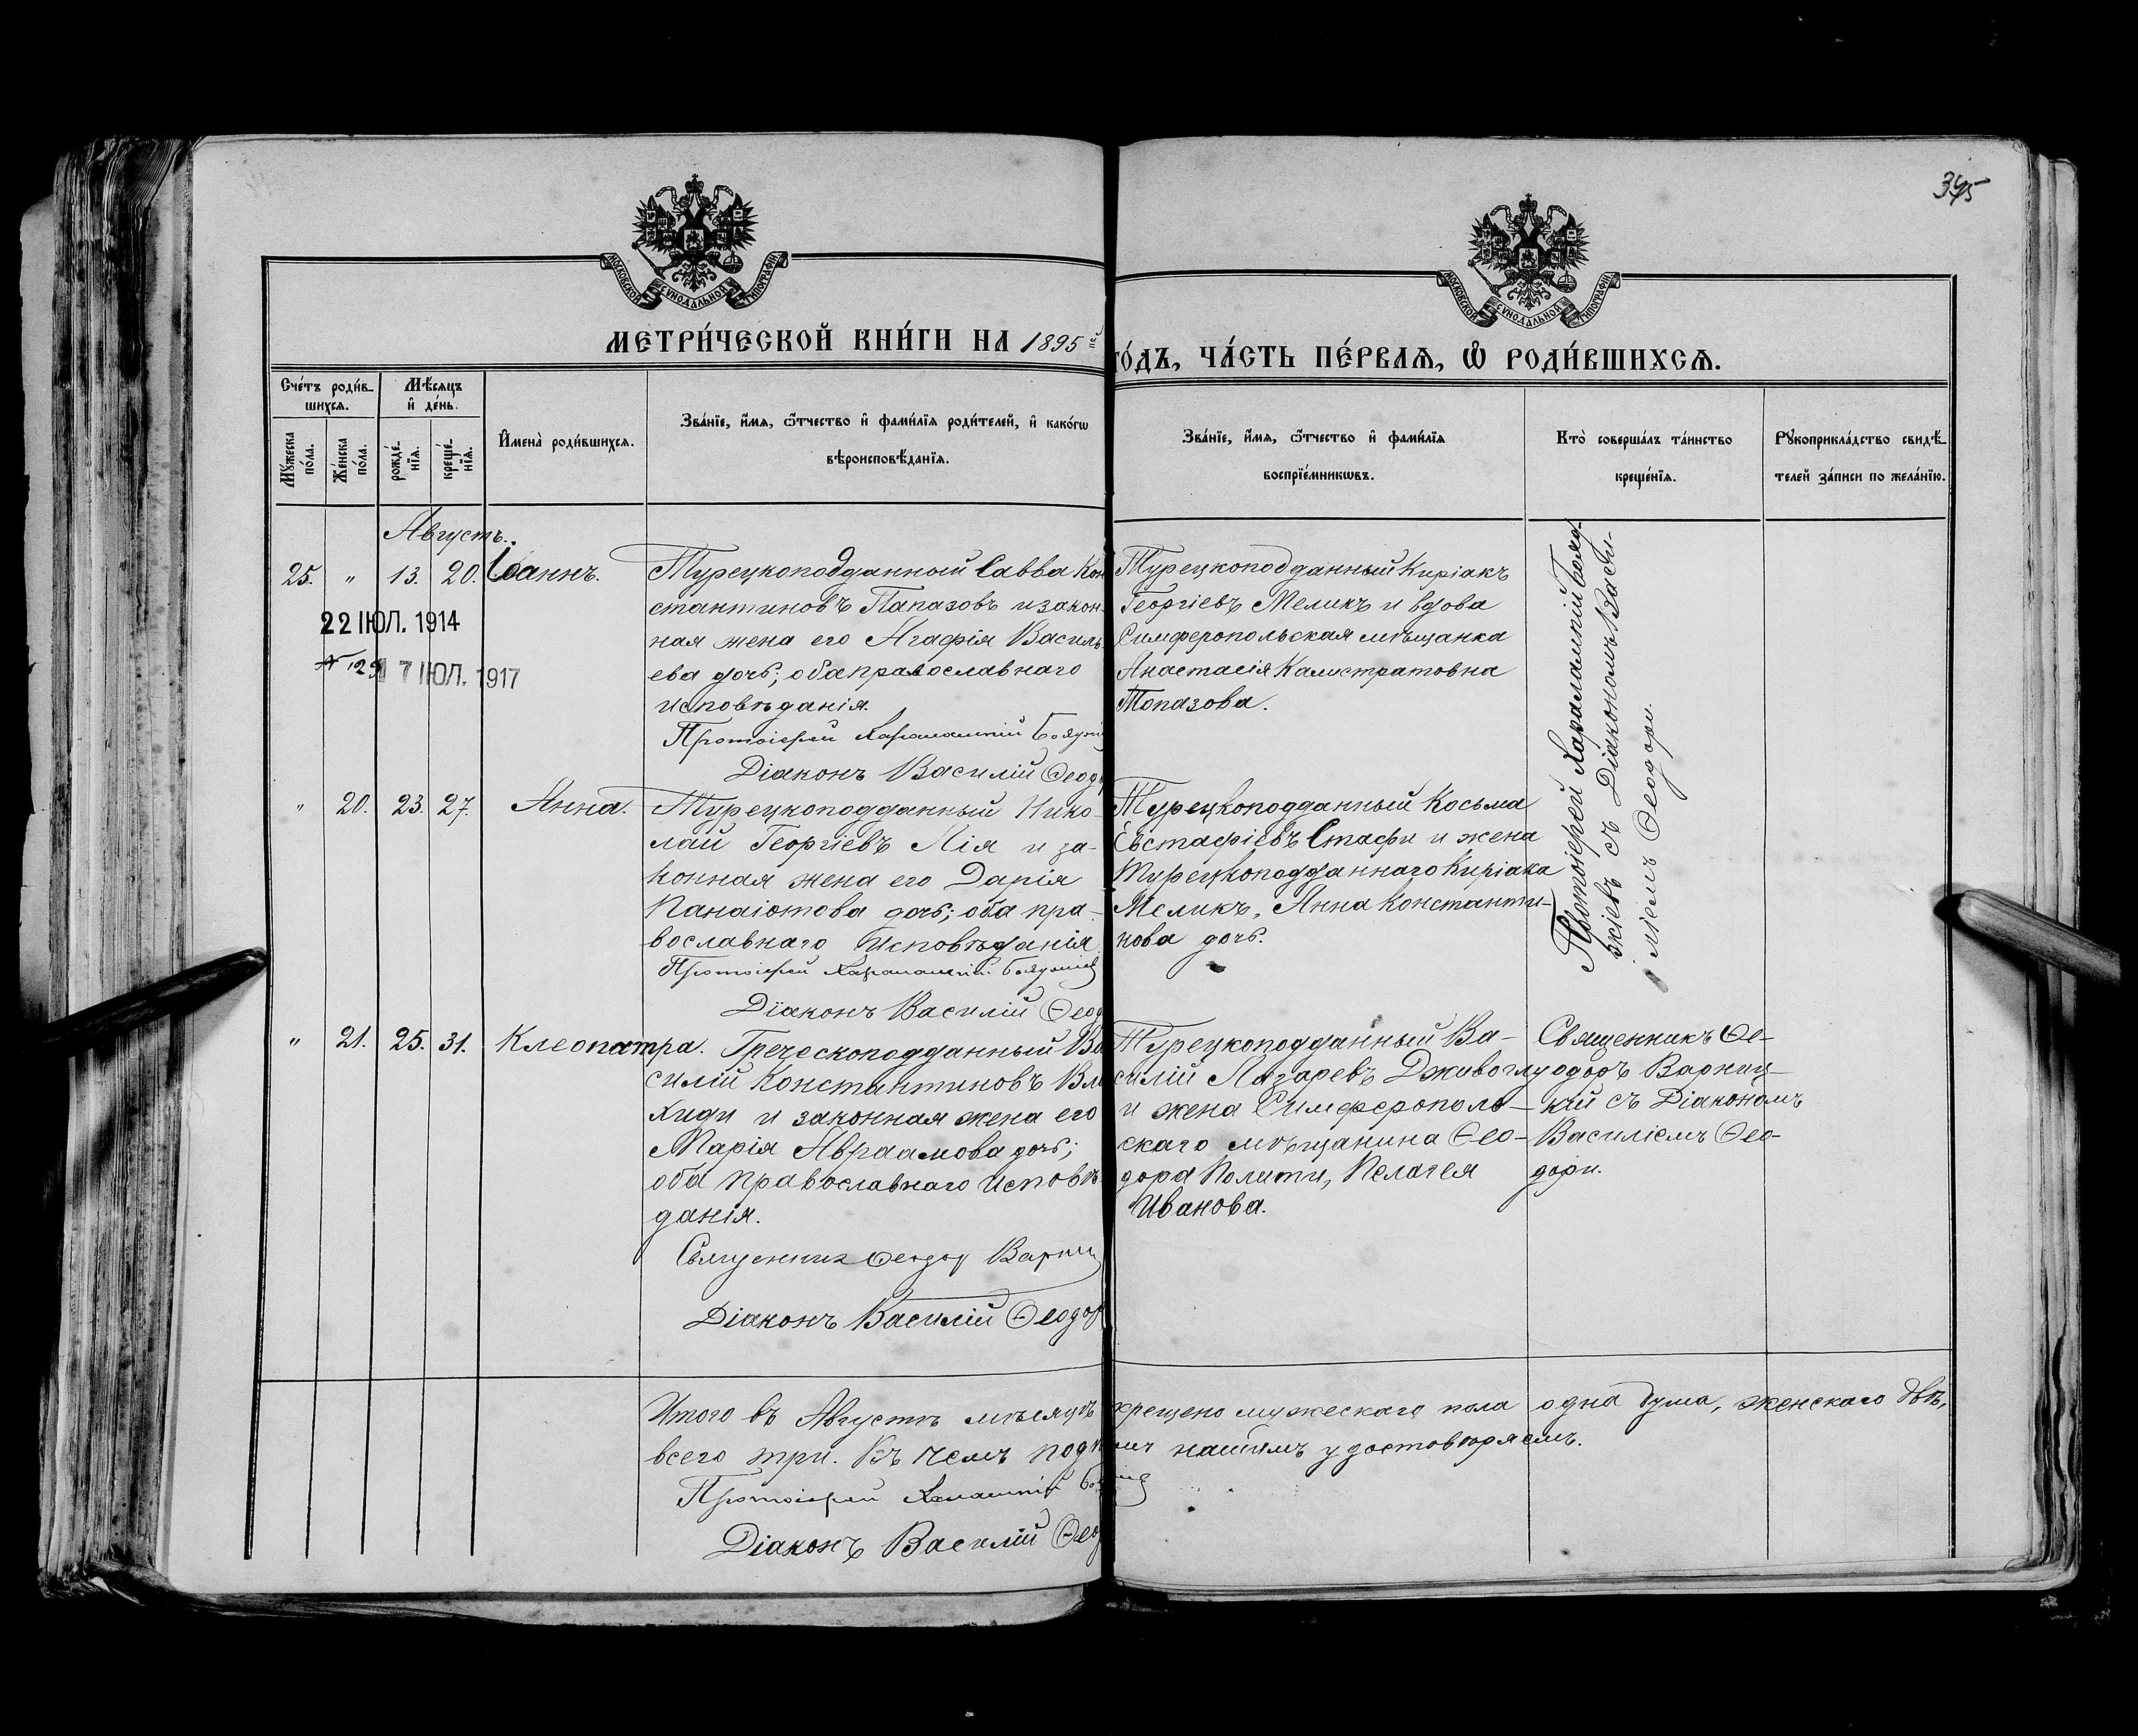 345
МОСКОВСКОЙ СѴНОДАЛЬНОЙ ТИПОГРАФІИ
МОСКОВСКОЙ СѴНОДАЛЬНОЙ ТИПОГРАФІИ
МЕТРИ́ЧЕСКОЙ КНИ́ГИ НА 1895й
ГО́ДЪ, ЧА́СТЬ ПЕ́РВАѦ, Ѽ РОДИ́ВШИХСѦ.
Сче́тъ роди́в-
шихсѧ.
Мѣ́сѧцъ
и҆ де́нь.
Мꙋ́жеска
по́ла.
Же́нска
по́ла.
рожде́-
нїѧ.
креще́-
нїѧ.
И҆мена̀ роди́вшихсѧ.
Зва́нїе, и҆́мѧ, ѻ҆́тчество и҆ фами́лїѧ роди́телей, и҆ како́гѡ
вѣроисповѣ́данїѧ.
Зва́нїе, и҆́мѧ, ѻ҆́тчество и҆ фами́лїѧ
воспрїе́мникѡвъ.
Кто̀ соверша́лъ та́инство
креще́нїѧ.
Рꙋкоприкла́дство свидѣ́-
телей за́писи по жела́нїю.
Августъ.
25. " 13. 20. Іоаннъ.
22 ІЮЛ. 1914
7 ІЮЛ. 1917
Турецкоподданный Савва Кон
стантиновъ Папазовъ и закон-
ная жена его Агафія Василь-
ева дочь; оба православнаго
исповѣданія.
Протоіерей Харалампій
Діаконъ Василій Ѳеод
Турецкоподданный Киріакъ
Георгіевъ Меликъ и вдова
Симферопольская мѣщанка
Анастасія Калистратовна
Топазова.
Протоіерей Харалампій Бояд-
жіевъ съ Діакономъ Васи-
ліемъ Ѳеодори.
" 20. 23. 27. Анна.
Турецкоподданный Нико-
лай Георгіевъ Лія и за-
конная жена его Дарія
Панаіотова дочь; оба пра-
вославнаго исповѣданія.
Протоіерей Харалампій
Діаконъ Василій Ѳеод
Турецкоподданный Косьма
Евстафіевъ Стафи и жена
Турецкоподданнаго Киріака
Меликъ, Анна Константи-
нова дочь.
" 21. 25. 31. Клеопатра.
Греческоподданный Ва
силій Константиновъ Вла
хиди и законная жена его
Марія Авраамова дочь;
оба православнаго исповѣ-
данія.
Священникъ Ѳеодор Варниц
Діаконъ Василій Ѳеодор
Турецкоподданный Ва-
силій Лазаревъ Дживоглу
и жена Симферополь-
скаго мѣщанина Ѳео-
дора Полити, Пелагея
Иванова.
Священникъ Ѳе-
одоръ Варниц-
кій съ Діакономъ
Василіемъ Ѳео-
дори.
Итого въ Августѣ мѣсяцѣ крещено мужескаго пола одна душа, женскаго двѣ,
всего три. Въ чемъ подп омъ нашимъ удостовѣряемъ.
Протоіерей
Діаконъ Василій Ѳеод